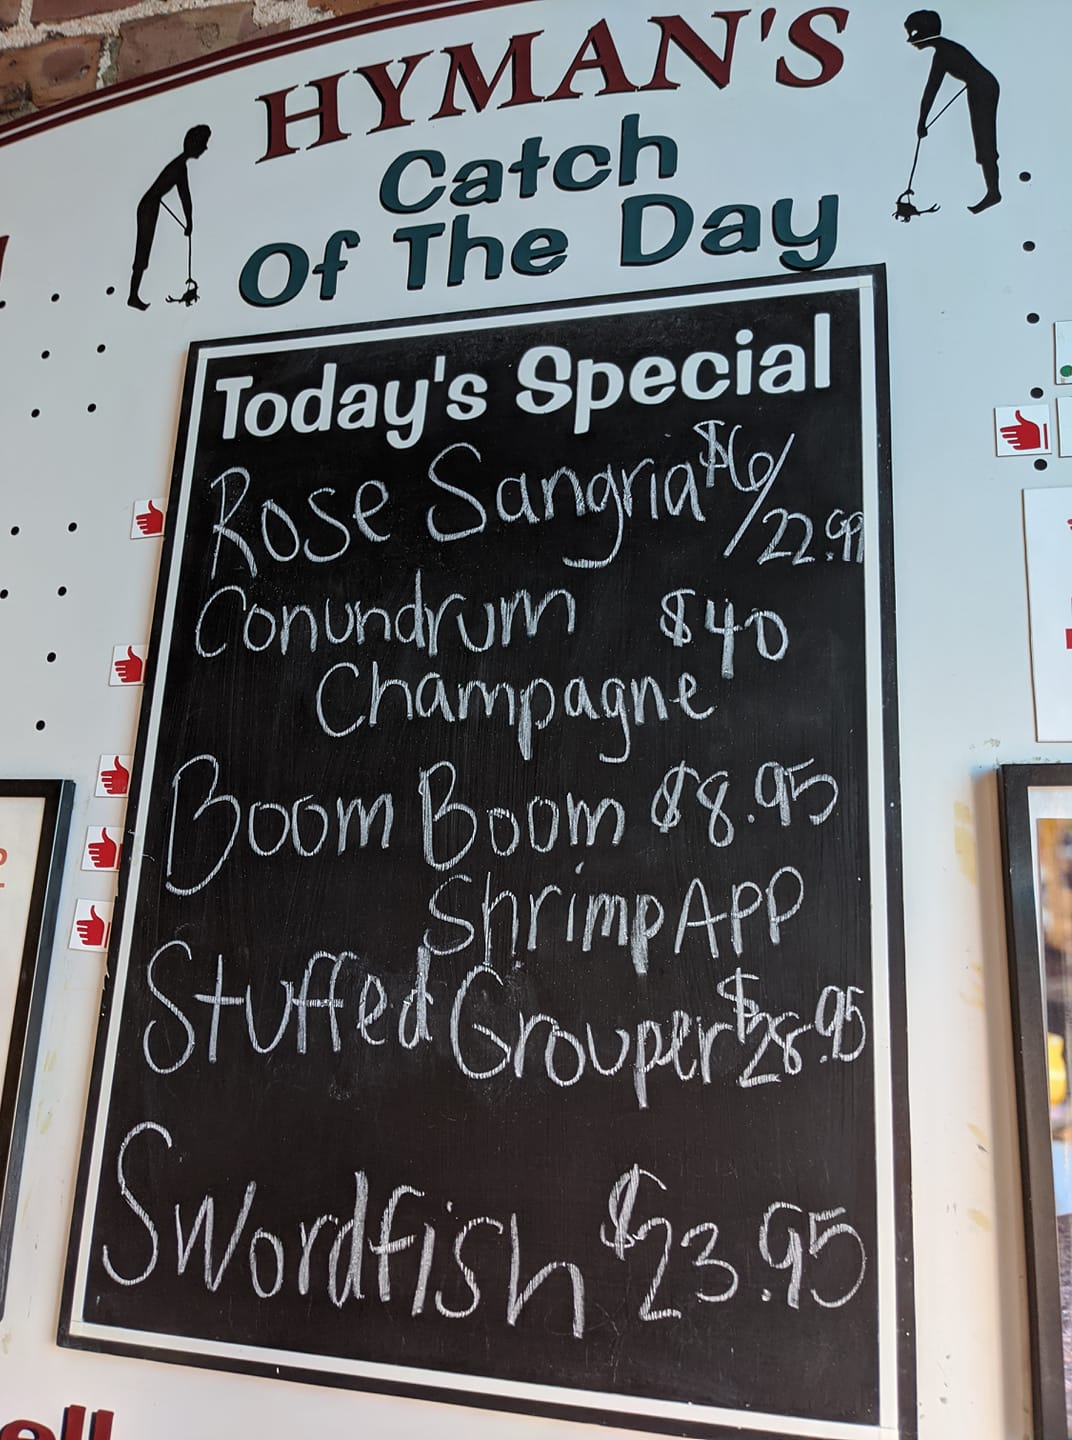 HYMAN'S
Catch
Of The Day
Today's Special
Rose Sangria $6/22.99
Conundrum $40
Champagne
Boom Boom $8.95
Shrimp APP
Stuffed Grouper $28.95
Swordfish $23.95
ell